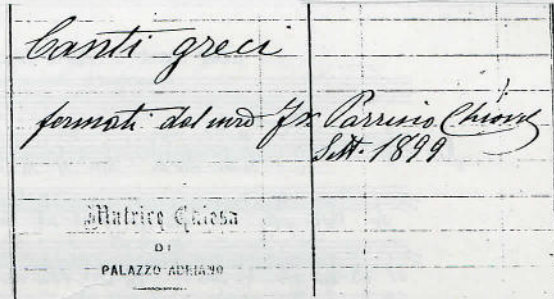 Canti greci
formati dal Parrino
Sett. 1899
Matrice Chiesa
DI
PALAZZO ADRIANO